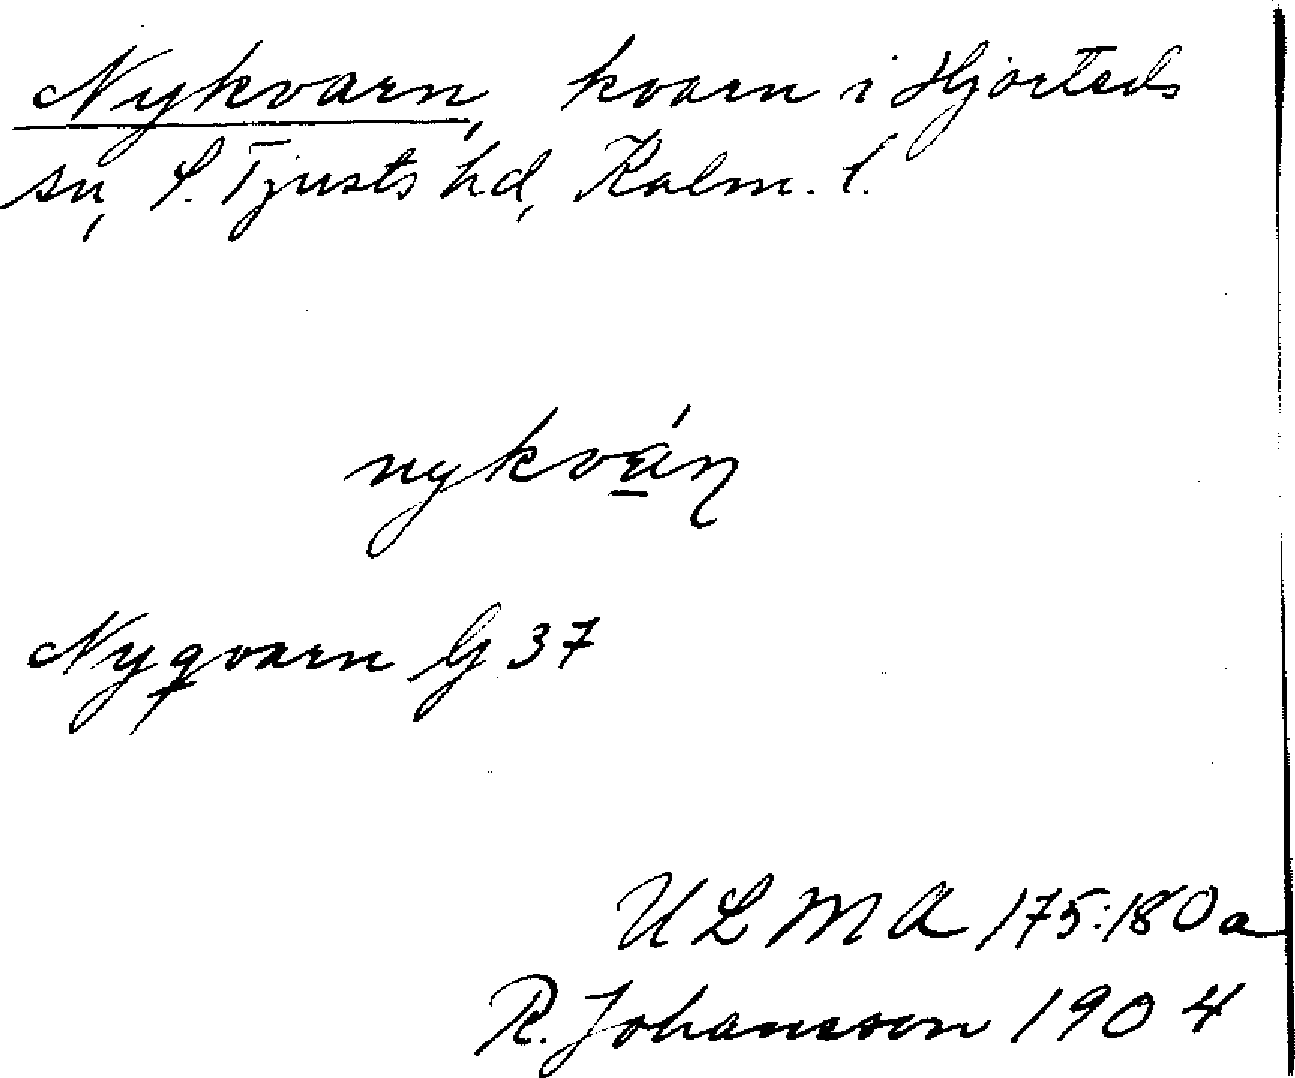 Nykvarn, kvarn i Hjorteds
sn, S. Tjusts hd, Kalm. l.
nykvá̱ɳ
Nyqvarn G 37
ULMA 175:180a
R. Johansson 1904